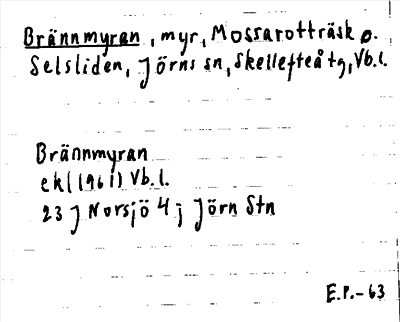 Brännmyran, myr, Mossarotträsk o.
Selsliden, Jörns sn, Skellefteå tg, Vb.l.
Brännmyran
ekl (1961) Vb.l.
23 J Norsjö 4 j Jörn Stn
E.P.-63